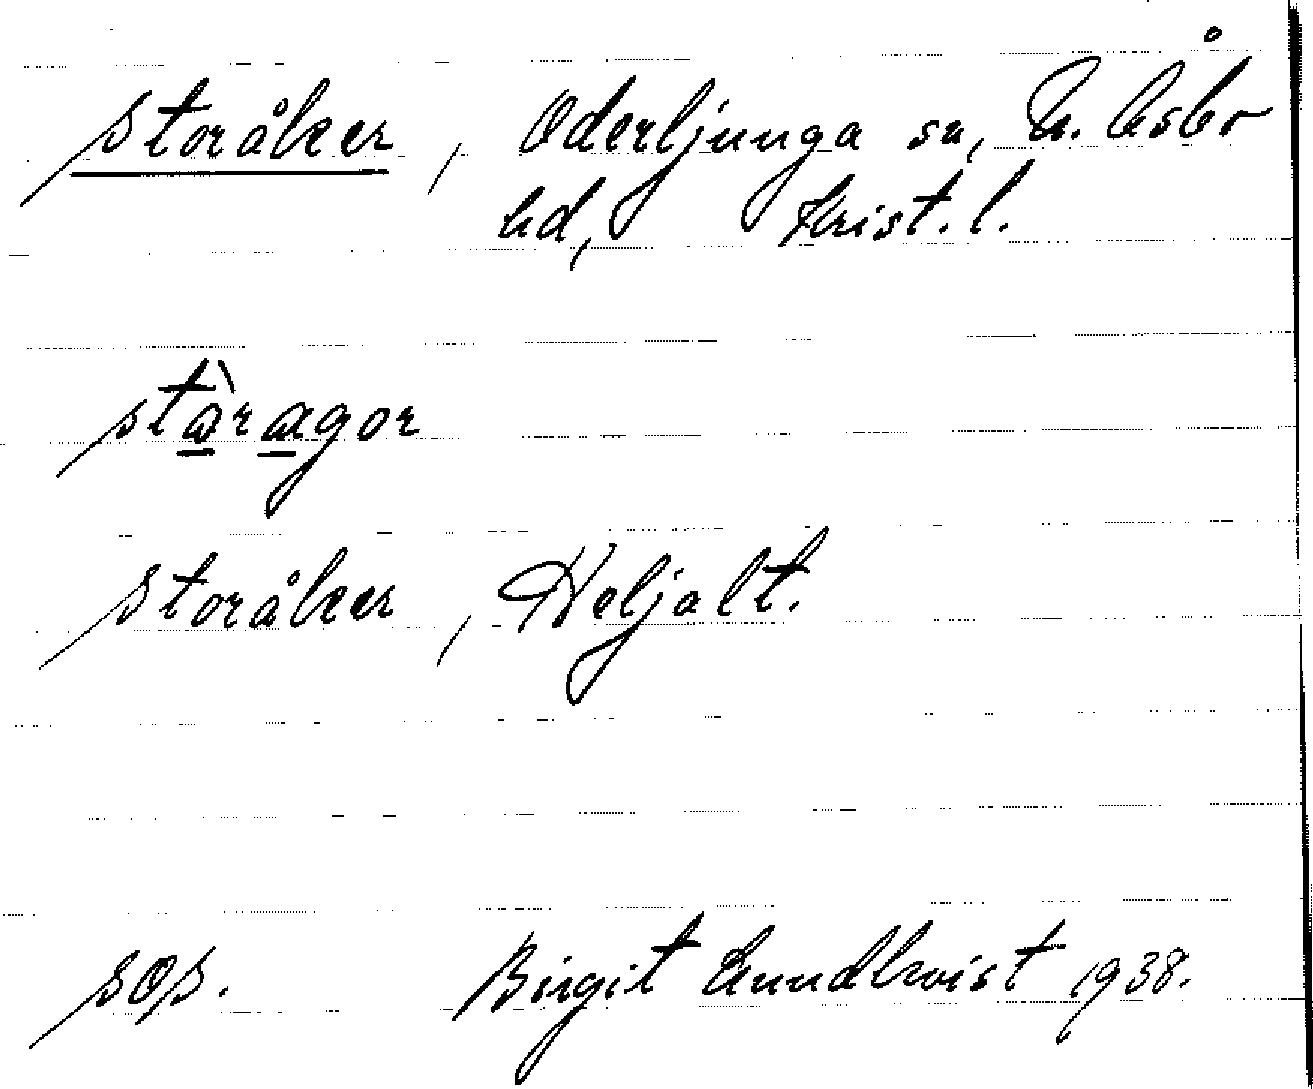 storåker, Oderljunga sn, N. Åsbo
hd, Krist. l.
stòragor
storåker, Heljalt.
sos. Birgit Lundkvist 1938.